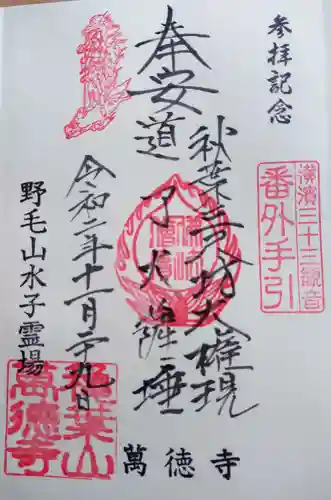 参拝記念
奉安
秋葉三尺坊大権現
道了大薩埵
横濱三十三観音
番外手引
令和二年十一月二十九日
野毛山水子霊場
秋葉山
萬徳寺
萬徳寺